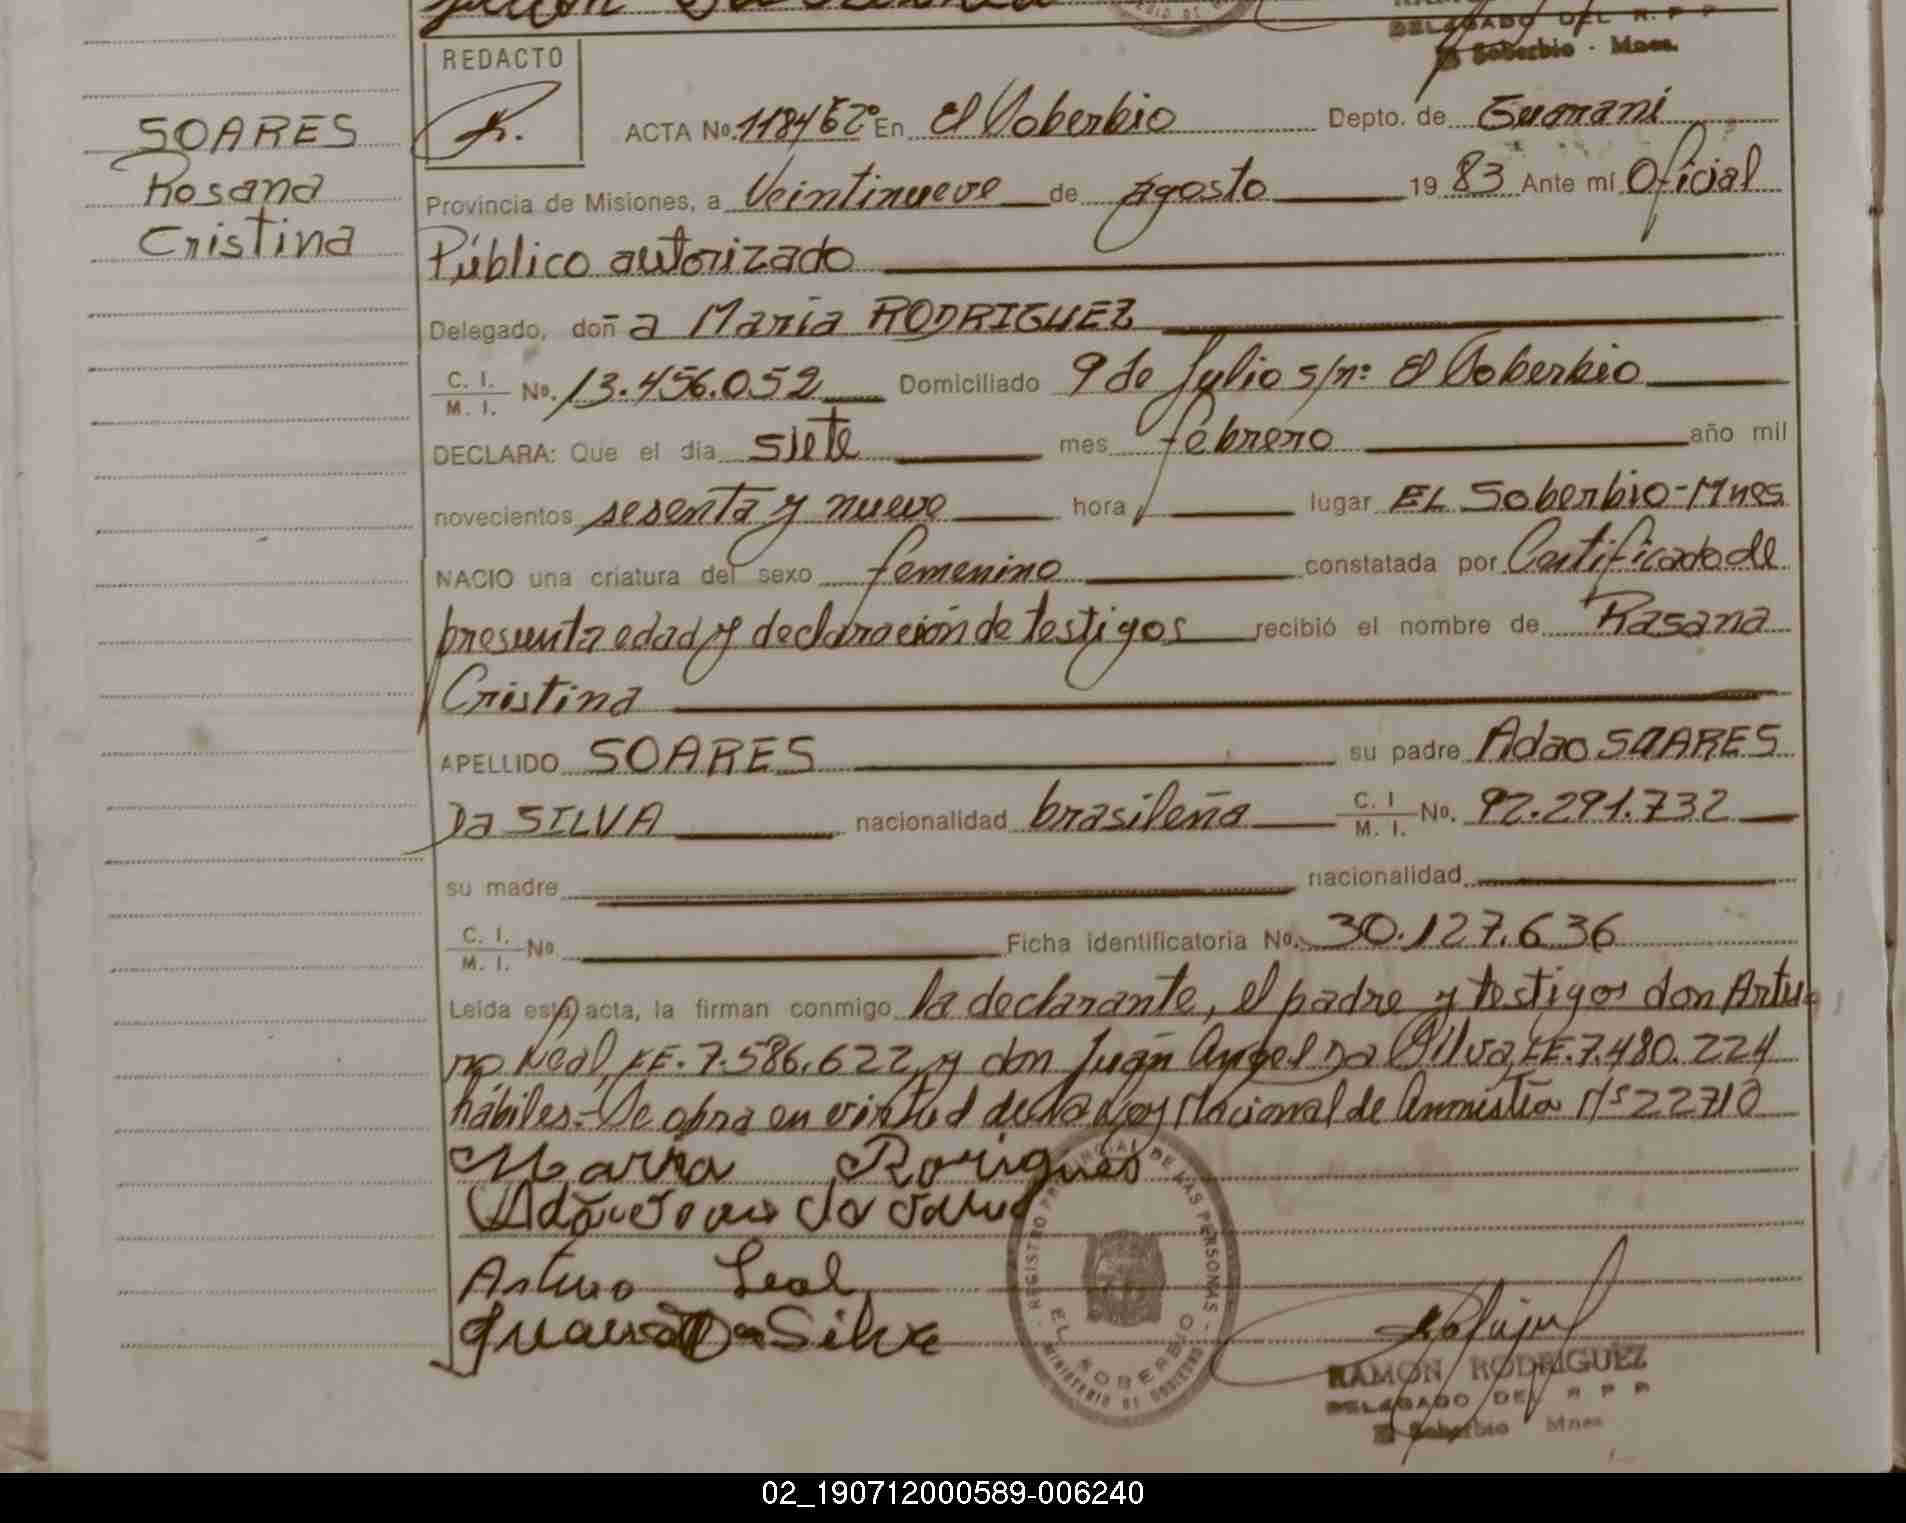 DELEGADO DEL R. P P
El Soberbio - Mnes.
REDACTO
SOARES
Rosana
Cristina
ACTA No. 1184 En El Soberbio Depto. de Guarani
Provincia de Misiones, a Veintinueve de Agosto 19 83 Ante mí Oficial
Público autorizado
Delegado, doñ a Maria RODRIGUEZ
C. I. M. I. No. 13.456.052 Domiciliado 9 de Julio s/nº El Soberbio
DECLARA: Que el día siete mes febrero año mil
novecientos sesenta y nueve hora lugar EL Soberbio-Mnes
NACIO una criatura del sexo femenino constatada por Certificado de
presunta edad y declaración de testigos recibió el nombre de Rasana
Cristina
APELLIDO SOARES su padre Adao SOARES
Da SILVA nacionalidad brasileña C. I M. I. No. 92.291.732
su madre nacionalidad
C. I. M. I. No. Ficha identificatoria No. 30.127.636
Leída esta acta, la firman conmigo la declarante, el padre y testigos don Artu-
ro Leal, LE. 7.586.622 y don Juán Angel Da Silva, LE. 7.480.224
hábiles.- Se obra en virtud de la Ley Nacional de Amnistía Nº 22710
Maria Rorigues
Arturo Leal
Da Silva
REGISTRO PROVINCIAL DE LAS PERSONAS
EL SOBERBIO
MINISTERIO DE GOBIERNO
RAMON RODRIGUEZ
DELEGADO DEL R P P
El Soberbio Mnes
02_190712000589-006240